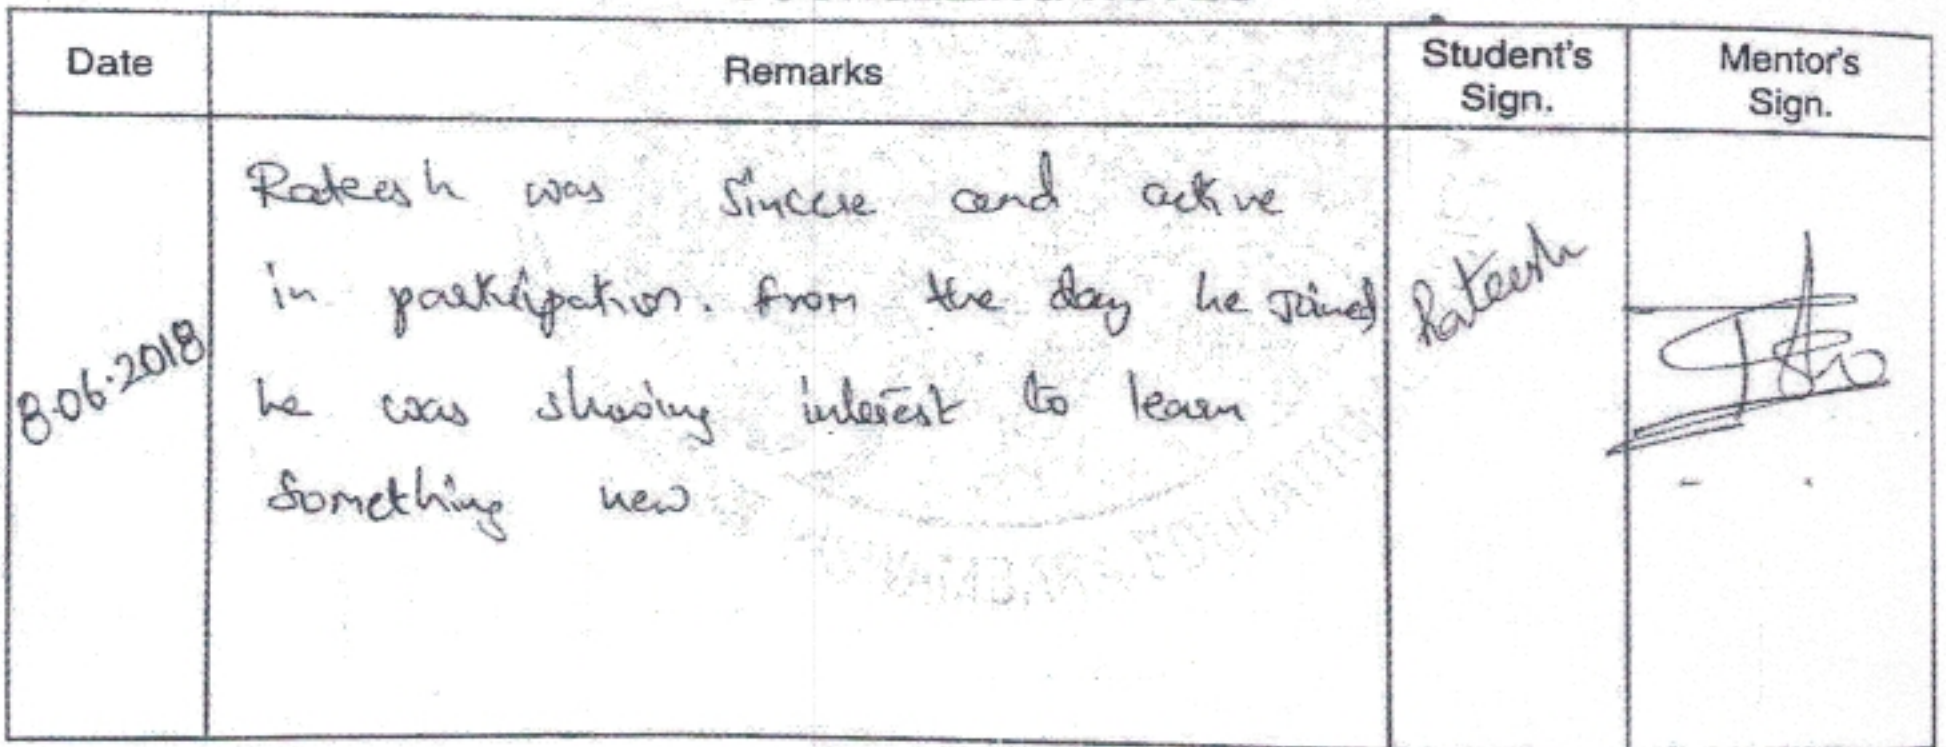 Date Remarks Student's Sign. Mentor's Sign.
8.06.2018
Rateesh was Sincere and active
in participation. from the day he joined
he was showing interest to learn
Something new
Rateesh